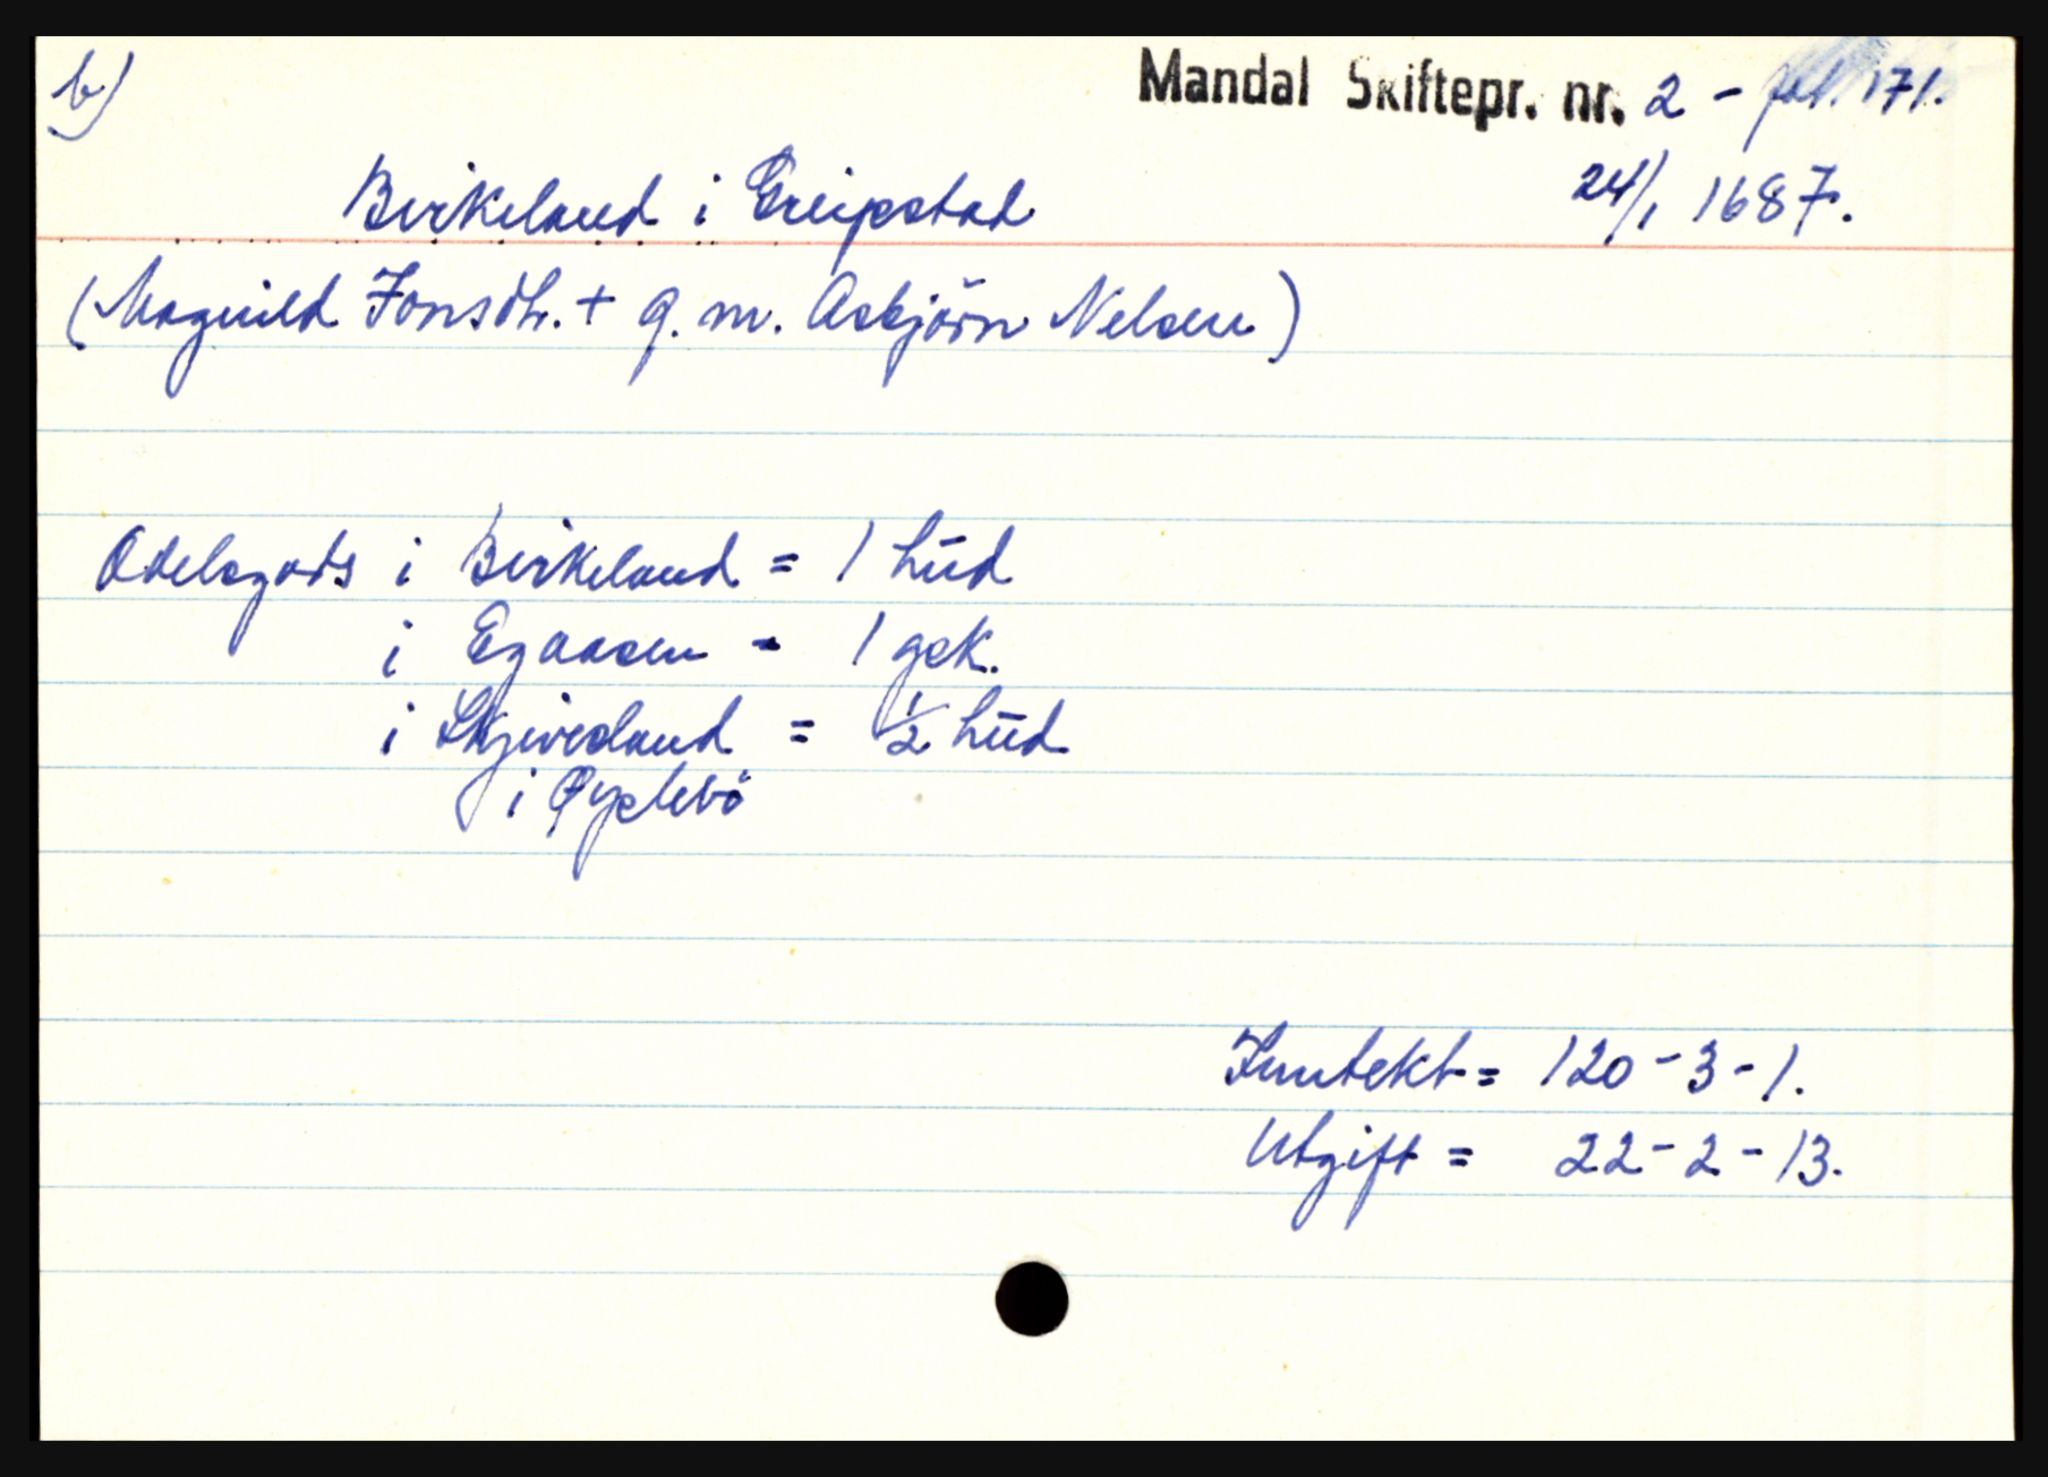 b)
Mandal Skiftepr. nr. 2 - fol. 171.
Birkeland i Greipstad
24/1 1687.
(Magnild Jonsdtr. + g. m. Asbjörn Nelsen)
Odelsgods i Birkeland = 1 hūd
i Egaasen - 1 gsk.
i Skjevesland = 1/2 hūd
i Øyslebö
Inntekt = 120 - 3 - 1.
Utgift = 22 - 2 - 13.